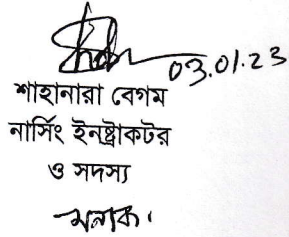 03.01.23
শাহানারা বেগম
নার্সিং ইনষ্ট্রাকটর
ও সদস্য